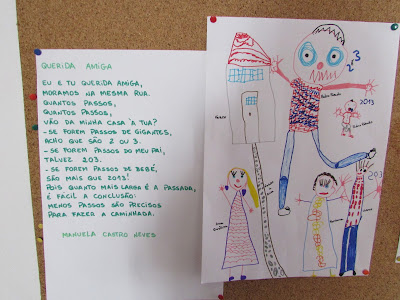 QUERIDA AMIGA
EU E TU QUERIDA AMIGA,
MORAMOS NA MESMA RUA.
QUANTOS PASSOS,
QUANTOS PASSOS,
VÃO DA MINHA CASA À TUA?
- SE FOREM PASSOS DE GIGANTES,
ACHO QUE SÃO 2 OU 3.
- SE FOREM PASSOS DO MEU PAI,
TALVEZ 203.
- SE FOREM PASSOS DE BEBÉ,
SÃO MAIS QUE 2013!
POIS QUANTO MAIS LARGA É A PASSADA,
É FÁCIL A CONCLUSÃO:
MENOS PASSOS SÃO PRECISOS
PARA FAZER A CAMINHADA.
MANUELA CASTRO NEVES
2
3
2013
203